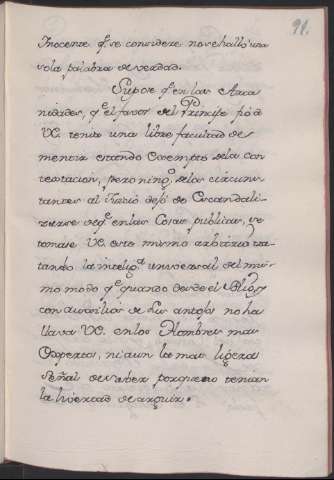 91.
Inocente qe. se considere no se halló una
sola palabra de verdad.
Supose qe. en las
nidades, qe. el favor del Principe
VC. tenia una libre facultad de
mentir estando Exempto de la con
textacion, pero ningo. de los circuns
tantes al Juicio dejó de Escandali
zarse de qe. en las Cosas publicas, se
tomase VC. este mismo arbitrio tra
tando la intelig.a universal del mis
mo modo qe. quando desde el
con auxilios de su antojo no ha
llava VC. en los Hombres mas
Expertos, ni aun la mas ligera
Señal de saber porque no tenian
la livertad de arguir.